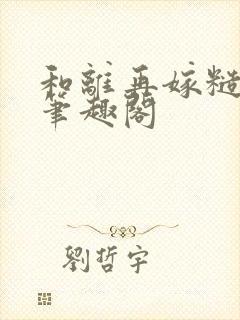 和離再嫁糙
筆趣閣
劉哲宇